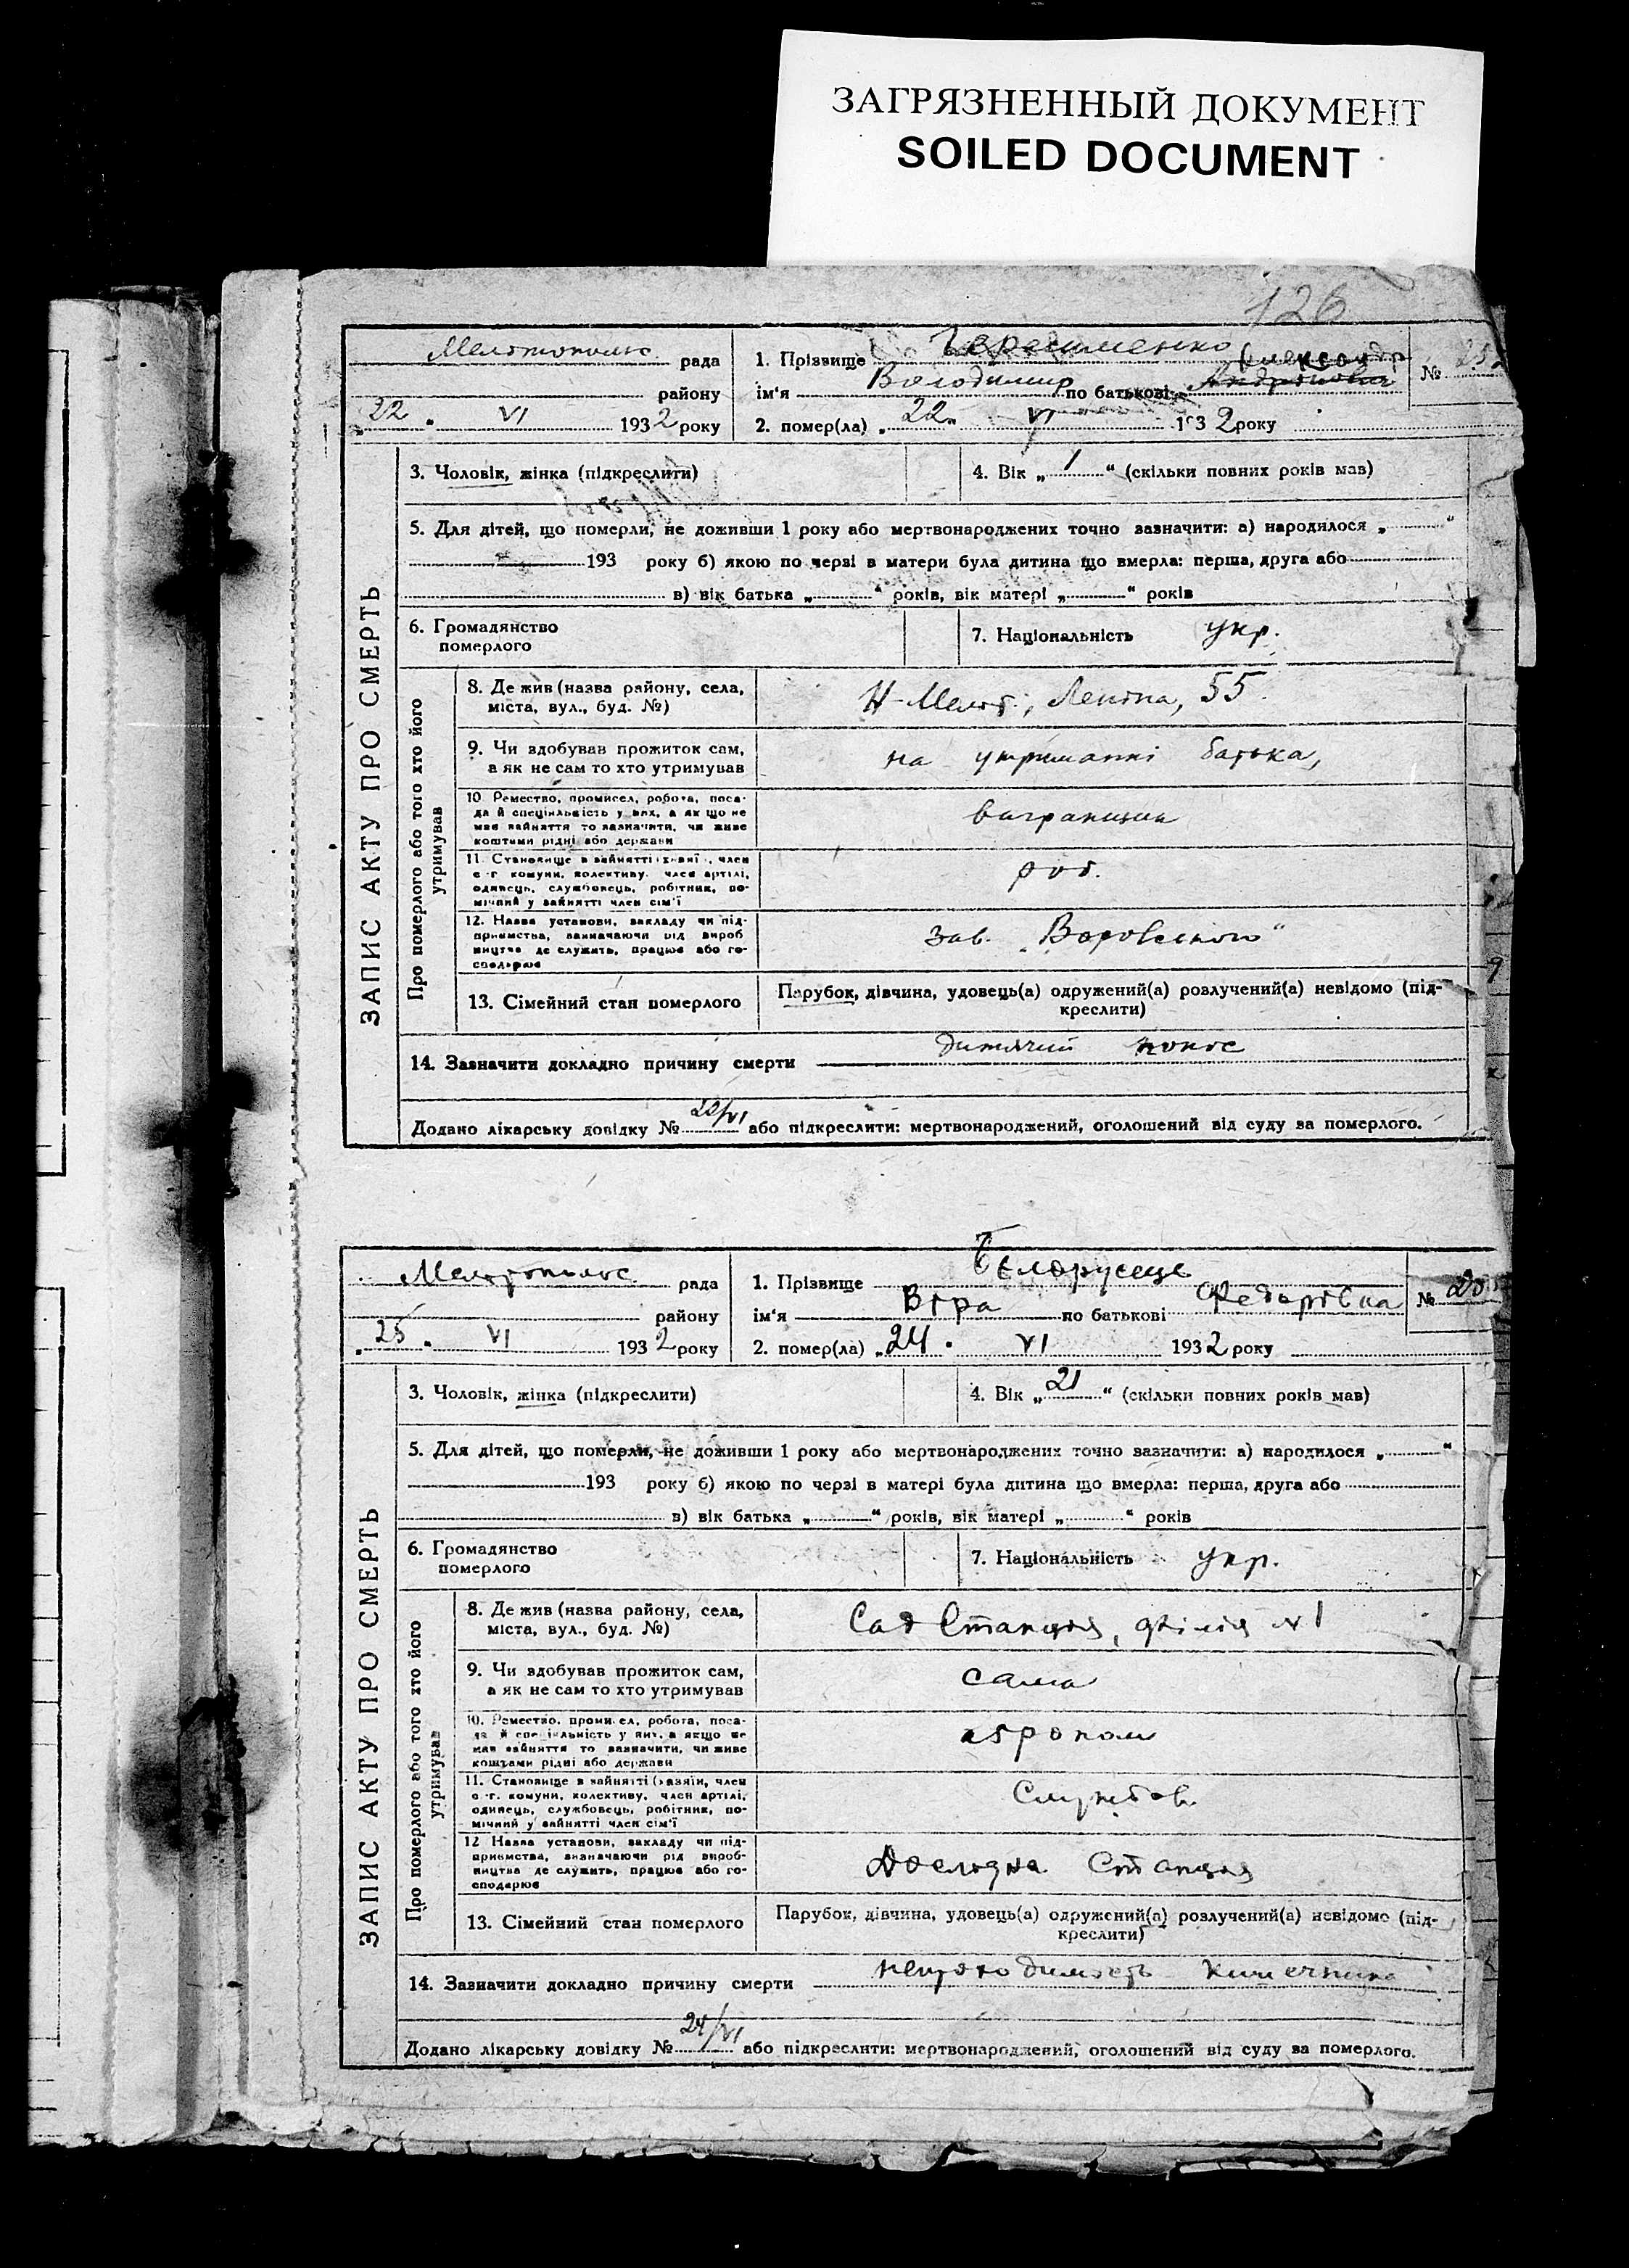 ЗАГРЯЗНЕННЫЙ ДОКУМЕНТ
SOILED DOCUMENT
126
Мелітопольс. рада
району
„22“ VI 1932 року
1. Прізвище Герасименко
Александр
ім'я Володимир по батькові Андрійович
№
2. помер(ла) „22“ VI 1932 року
ЗАПИС АКТУ ПРО СМЕРТЬ
3. Чоловік, жінка (підкреслити)
4. Вік „1“ (скільки повних років мав)
5. Для дітей, що померли, не доживши 1 року або мертвонароджених точно зазначити: а) народилося „ “
193 року б) якою по черзі в матери була дитина що вмерла: перша, друга або
в) вік батька „ “ років, вік матері „ “ років
6. Громадянство
померлого
7. Національність укр.
Про померлого або того хто його
утримував
8. Де жив (назва району, села,
міста, вул., буд. №)
Н-Меліт., Леніна, 55.
9. Чи здобував прожиток сам,
а як не сам то хто утримував
на утриманні батька,
10. Ремество, промисел, робота, поса-
да й спеціяльність у них, а як що не
мав зайняття то зазначити, чи живе
коштами рідні або держави
вагранщик
11. Становище в зайнятті (хазяїн, член
с.-г. комуни, колективу, член артілі,
одинець, службовець, робітник, по-
мічний у зайнятті член сім'ї
роб.
12. Назва установи, закладу чи під-
приємства, зазначаючи рід вироб
ництва де служить, працює або го-
сподарює
Зав. „Воровського“
13. Сімейний стан померлого
Парубок, дівчина, удовець(а) одружений(а) розлучений(а) невідомо (під-
креслити)
14. Зазначити докладно причину смерти дитячий понос
Додано лікарську довідку № 22/VI або підкреслити: мертвонароджений, оголошений від суду за померлого.
Мелітопольс. рада
району
„25“ VI 1932 року
1. Прізвище Белорусець
ім'я Віра по батькові Федорівна
№
2. помер(ла) „24“ VI 1932 року
ЗАПИС АКТУ ПРО СМЕРТЬ
3. Чоловік, жінка (підкреслити)
4. Вік „21“ (скільки повних років мав)
5. Для дітей, що померли, не доживши 1 року або мертвонароджених точно зазначити: а) народилося „ “
193 року б) якою по черзі в матері була дитина що вмерла: перша, друга або
в) вік батька „ “ років, вік матері „ “ років
6. Громадянство
померлого
7. Національність укр.
Про померлого або того хто його
утримував
8. Де жив (назва району, села,
міста, вул., буд. №)
Сад Станція, філія №1
9. Чи здобував прожиток сам,
а як не сам то хто утримував
сама
10. Ремество, промисел, робота, поса-
да й спеціяльність у них, а якщо не
мав зайняття то зазначити, чи живе
коштами рідні або держави
агроном
11. Становище в зайнятті (хазяїн, член
с.-г. комуни, колективу, член артілі,
одинець, службовець, робітник, по-
мічний у зайнятті член сім'ї
Службов.
12 Назва установи, закладу чи під-
приємства, визначаючи рід вироб-
ництва де служить, працює або го-
сподарює
Дослідна Станція
13. Сімейний стан померлого
Парубок, дівчина, удовець(а) одружений(а) розлучений(а) невідомо (під-
креслити)
14. Зазначити докладно причину смерти непроходимость кишечника
Додано лікарську довідку № 24/VI або підкреслити: мертвонароджений, оголошений від суду за померлого.